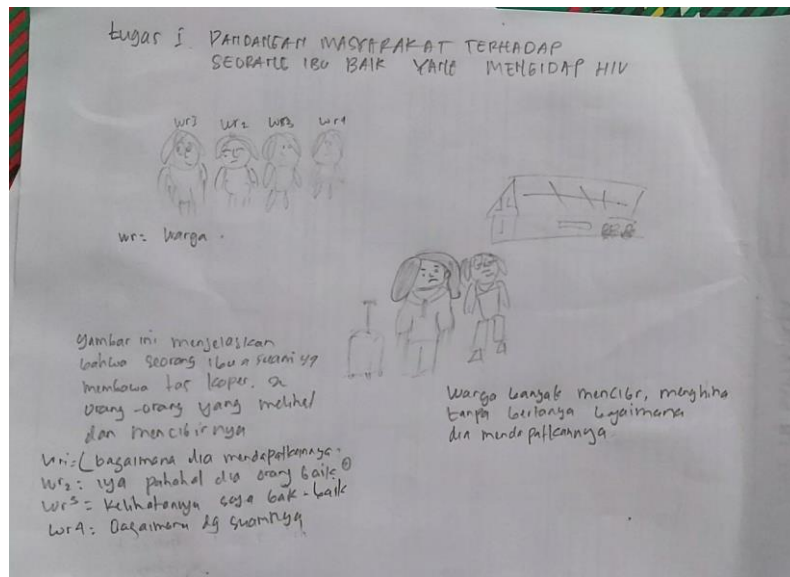 tugas I PANDANGAN MASYARAKAT TERHADAP
SEORANG IBU BAIK YANG MENGIDAP HIV
wr3 wr2 wr3 wr4
wr = Warga.
gambar ini menjelaskan
bahwa seorang ibu & suami yg
membawa tas koper, &
orang-orang yang melihat
dan mencibirnya
wr1 = bagaimana dia mendapatkannya.
wr2 : iya pahahal dia orang baik
wr3 = kelihatannya saja baik-baik
wr4 : Bagaimana dg suaminya
Warga banyak mencibir, menghina
tanpa bertanya bagaimana
dia mendapatkannya